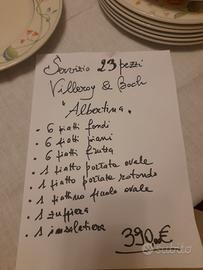 Servizio 23 pezzi
Villeroy & Boch
"Albertina"
• 6 piatti fondi
• 6 piatti piani
• 6 piatti frutta
• 1 piatto portata ovale
• 1 piatto portata rotondo
• 1 piattino piccolo ovale
• 1 zuppiera
• 1 insalatiera
390,00€
subito